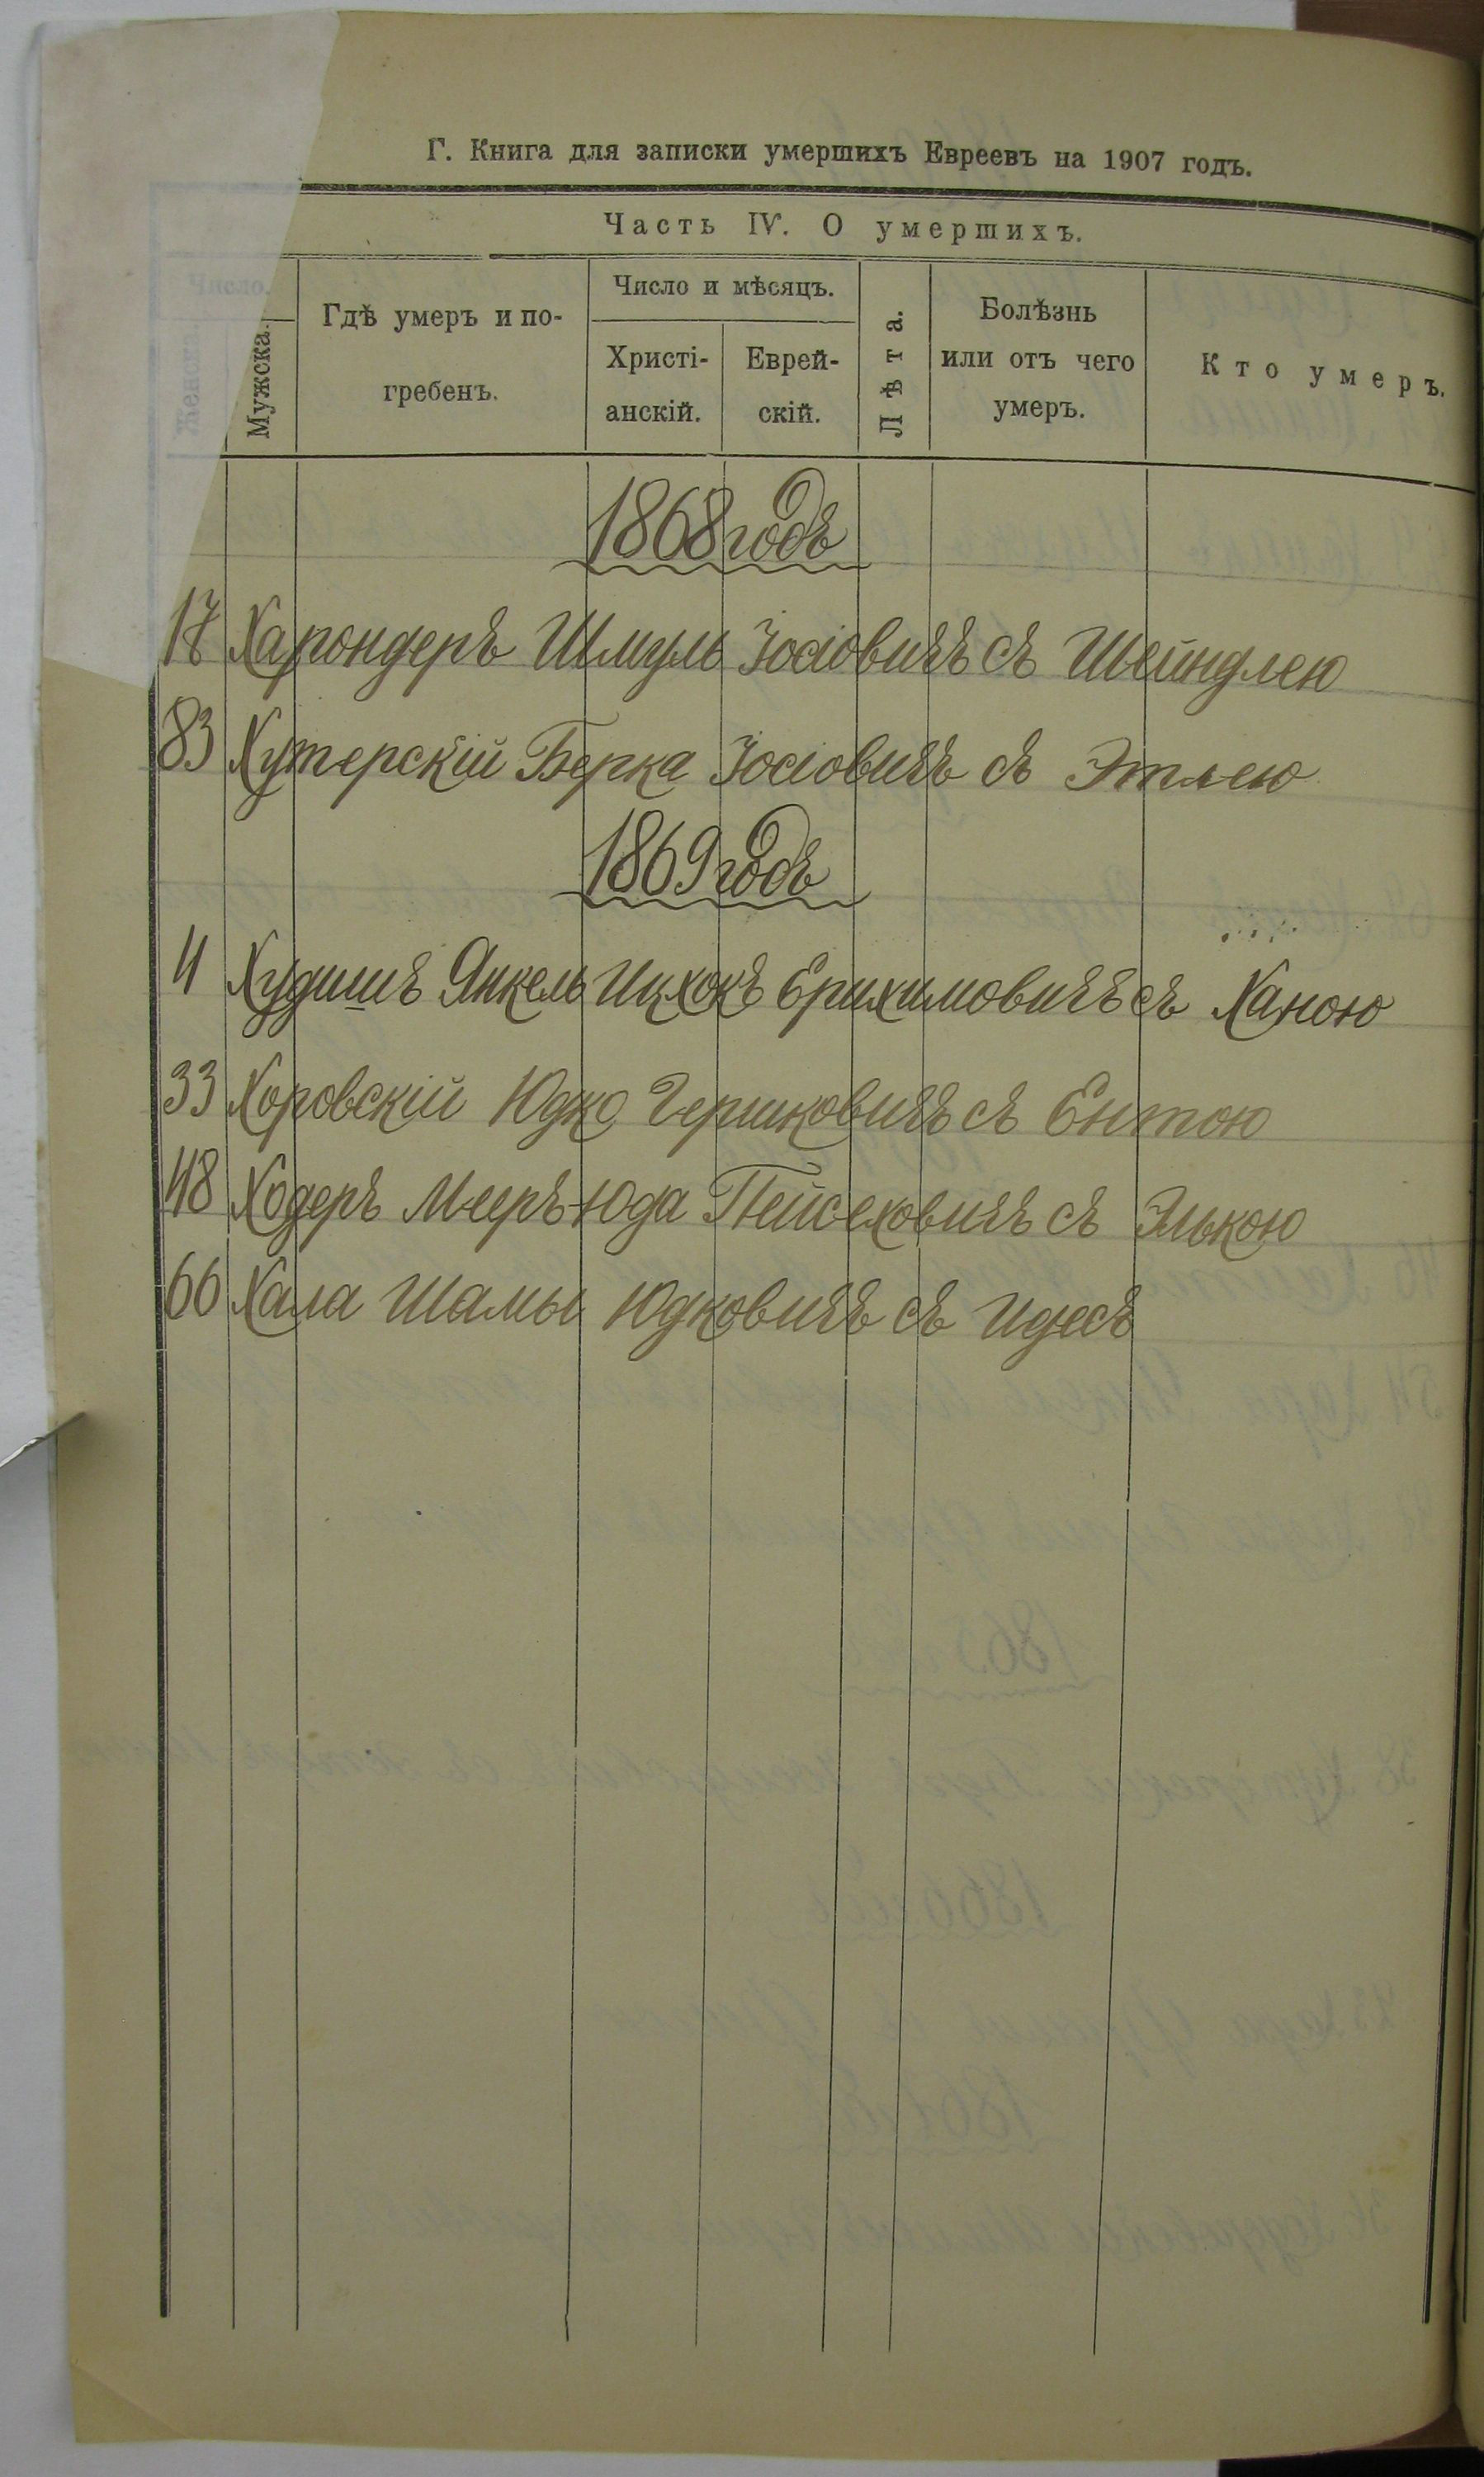 Г. Книга для записки умершихъ Евреевъ на 1907 годъ.
Часть IV. О умершихъ.
Число.
Женска.
Мужска.
Гдѣ умеръ и по-
гребенъ.
Число и мѣсяцъ.
Христі-
анскій.
Еврей-
скій.
Лѣта.
Болѣзнь
или отъ чего
умеръ.
Кто умеръ.
1868 годъ
17 Харондеръ Шмуль Іосіовичъ съ Шейндлею
83 Хутерскій Берка Іосіовичъ съ Этлею
1869 годъ
4 Худишъ Янкель Ицхокъ Ерихимовичъ съ Ханою
33 Хоровскій Юдко Гершковичъ съ Ентою
48 Ходеръ Мееръ-Юда Пейсеховичъ съ Элькою
66 Хала Шамы Юдковичъ съ Идесъ